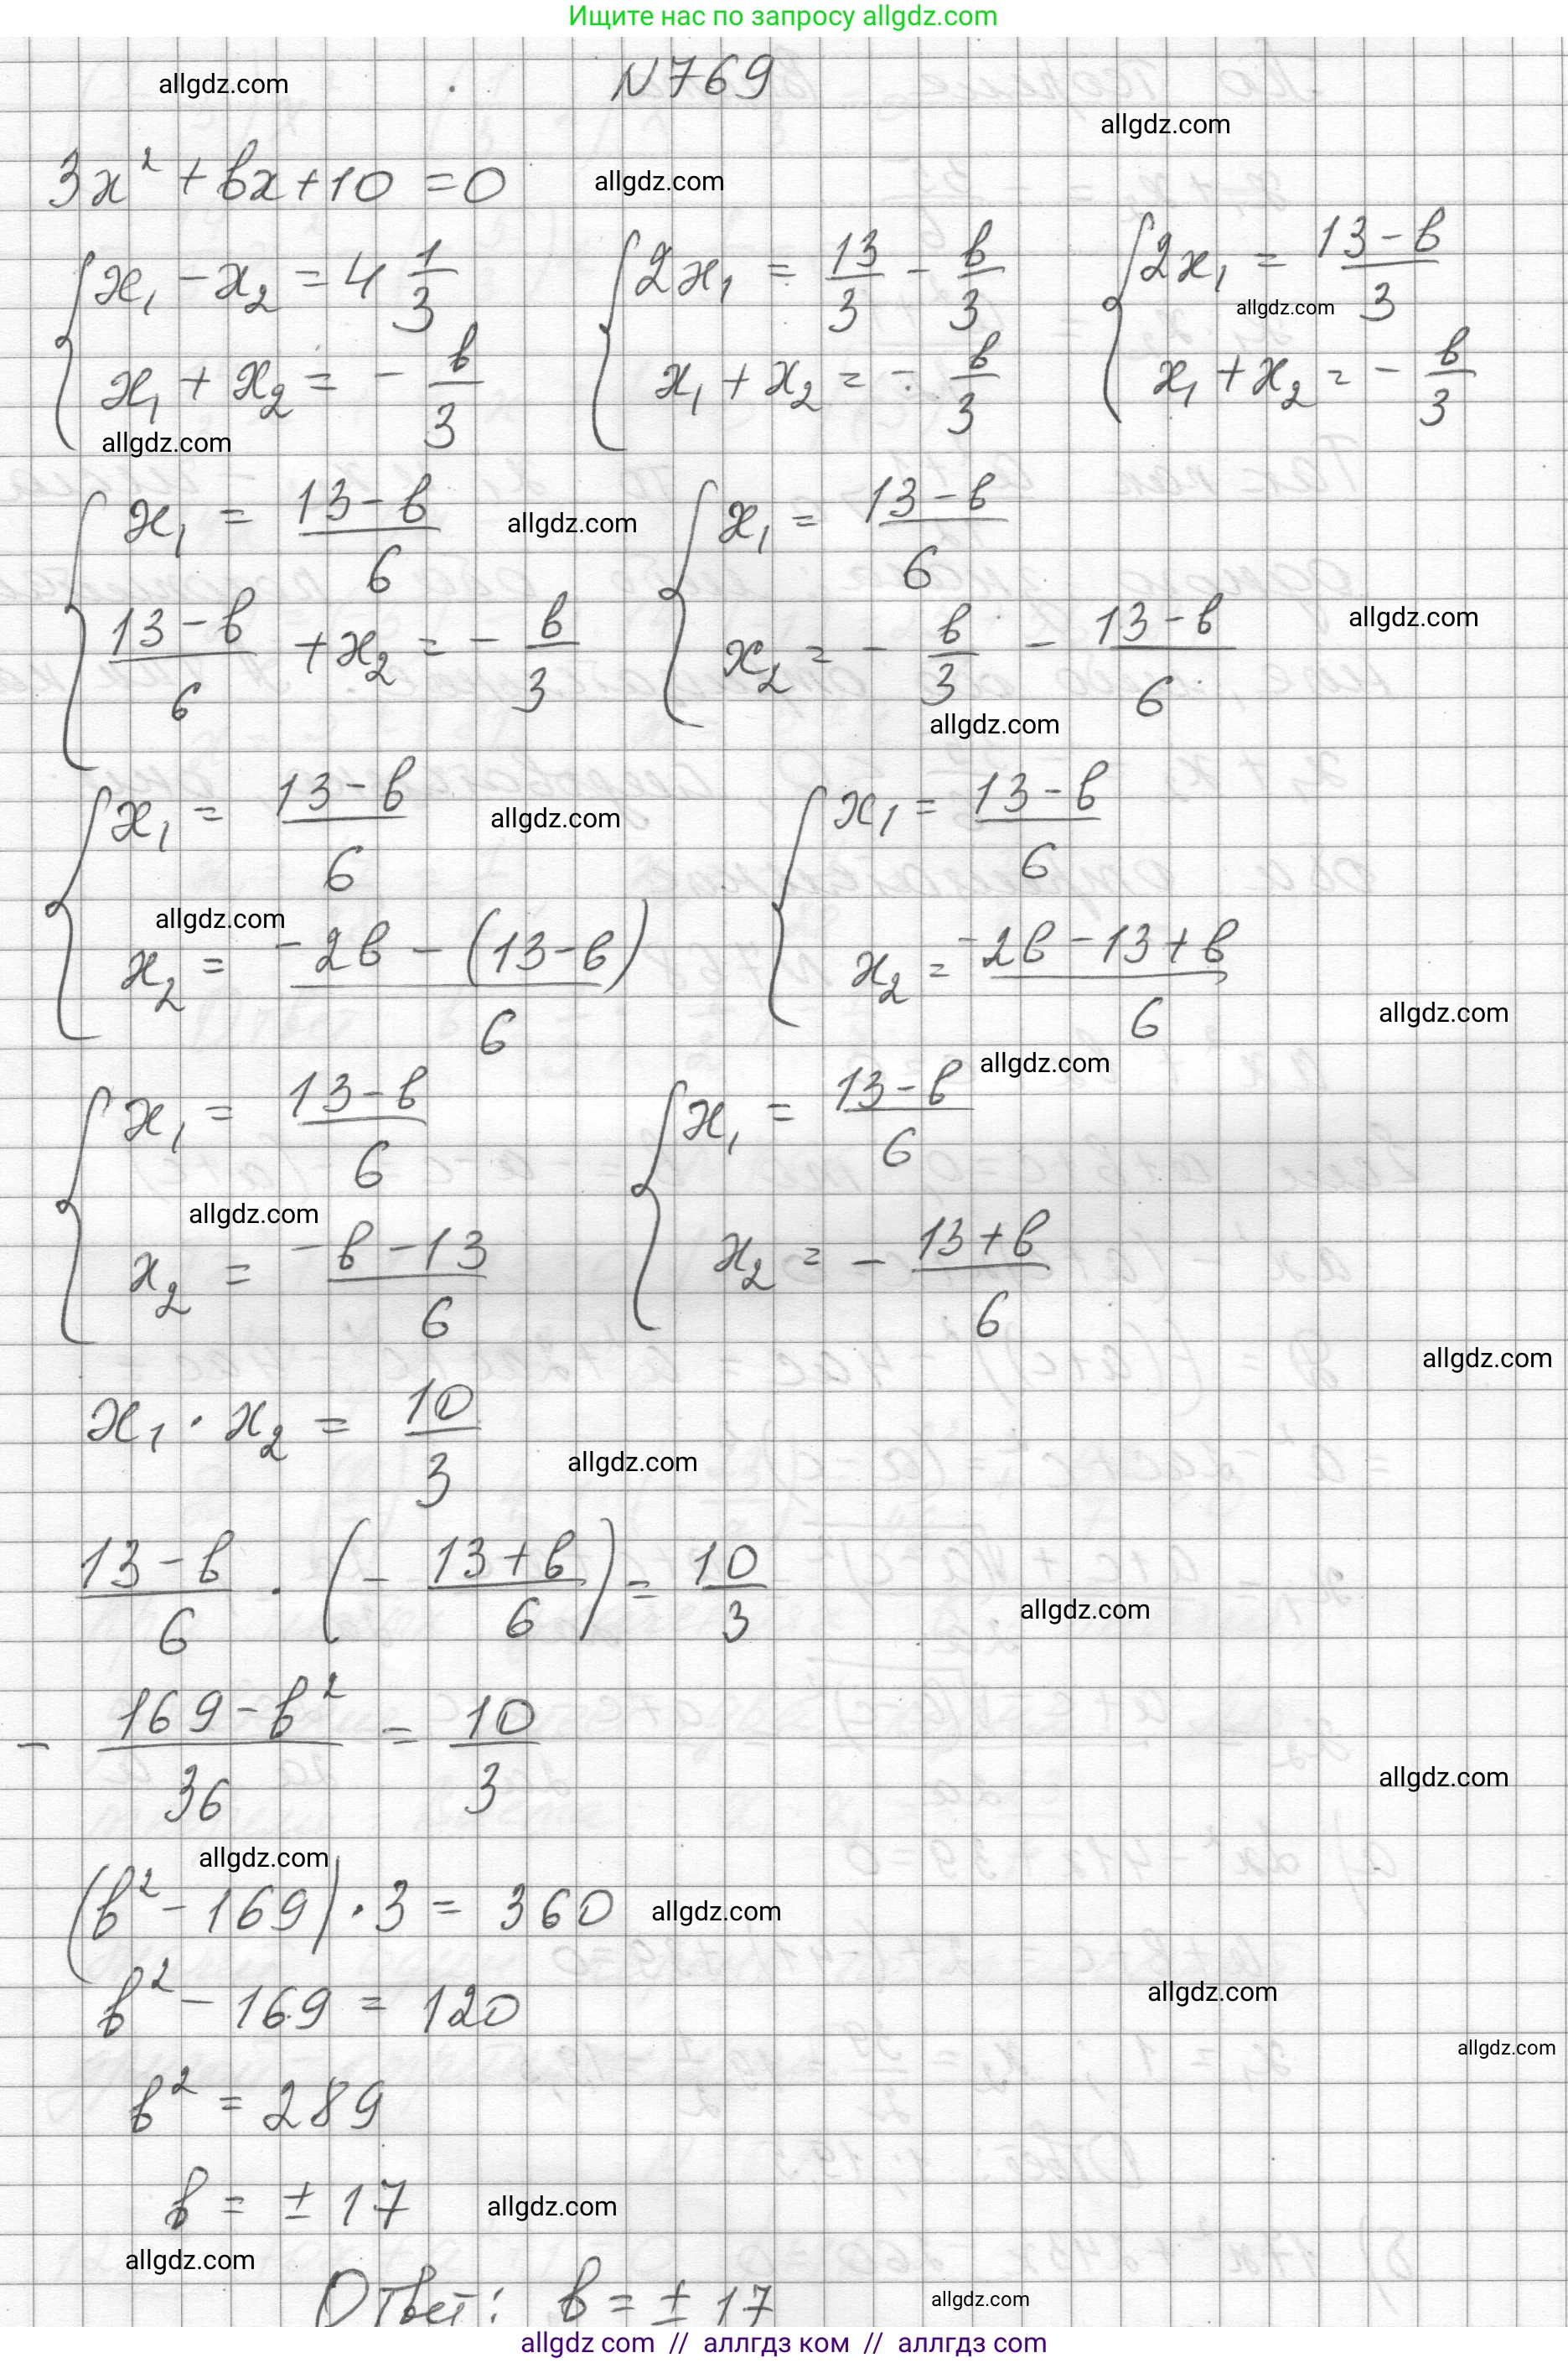 Ищите нас по запросу allgdz.com
allgdz.com
N769
allgdz.com
3x² + bx + 10 = 0
allgdz.com
{ x₁ - x₂ = 4 1/3   { 2x₁ = 13/3 - b/3   { 2x₁ = (13 - b)/3
allgdz.com
x₁ + x₂ = - b/3   x₁ + x₂ = - b/3   x₁ + x₂ = - b/3
allgdz.com
{ x₁ = (13 - b)/6   allgdz.com   { x₁ = (13 - b)/6
(13 - b)/6 + x₂ = - b/3   x₂ = - b/3 - (13 - b)/6   allgdz.com
allgdz.com
{ x₁ = (13 - b)/6   allgdz.com   { x₁ = (13 - b)/6
allgdz.com
x₂ = (-2b - (13 - b))/6   x₂ = (-2b - 13 + b)/6
allgdz.com
allgdz.com
{ x₁ = (13 - b)/6   { x₁ = (13 - b)/6
allgdz.com
x₂ = (-b - 13)/6   x₂ = - (13 + b)/6
allgdz.com
x₁ · x₂ = 10/3
allgdz.com
(13 - b)/6 · (- (13 + b)/6) = 10/3
allgdz.com
- (169 - b²)/36 = 10/3
allgdz.com
allgdz.com
(b² - 169) · 3 = 360   allgdz.com
b² - 169 = 120
allgdz.com
allgdz.com
b² = 289
b = ± 17   allgdz.com
allgdz.com
Ответ: b = ± 17   allgdz.com
allgdz com // аллгдз ком // аллгдз com